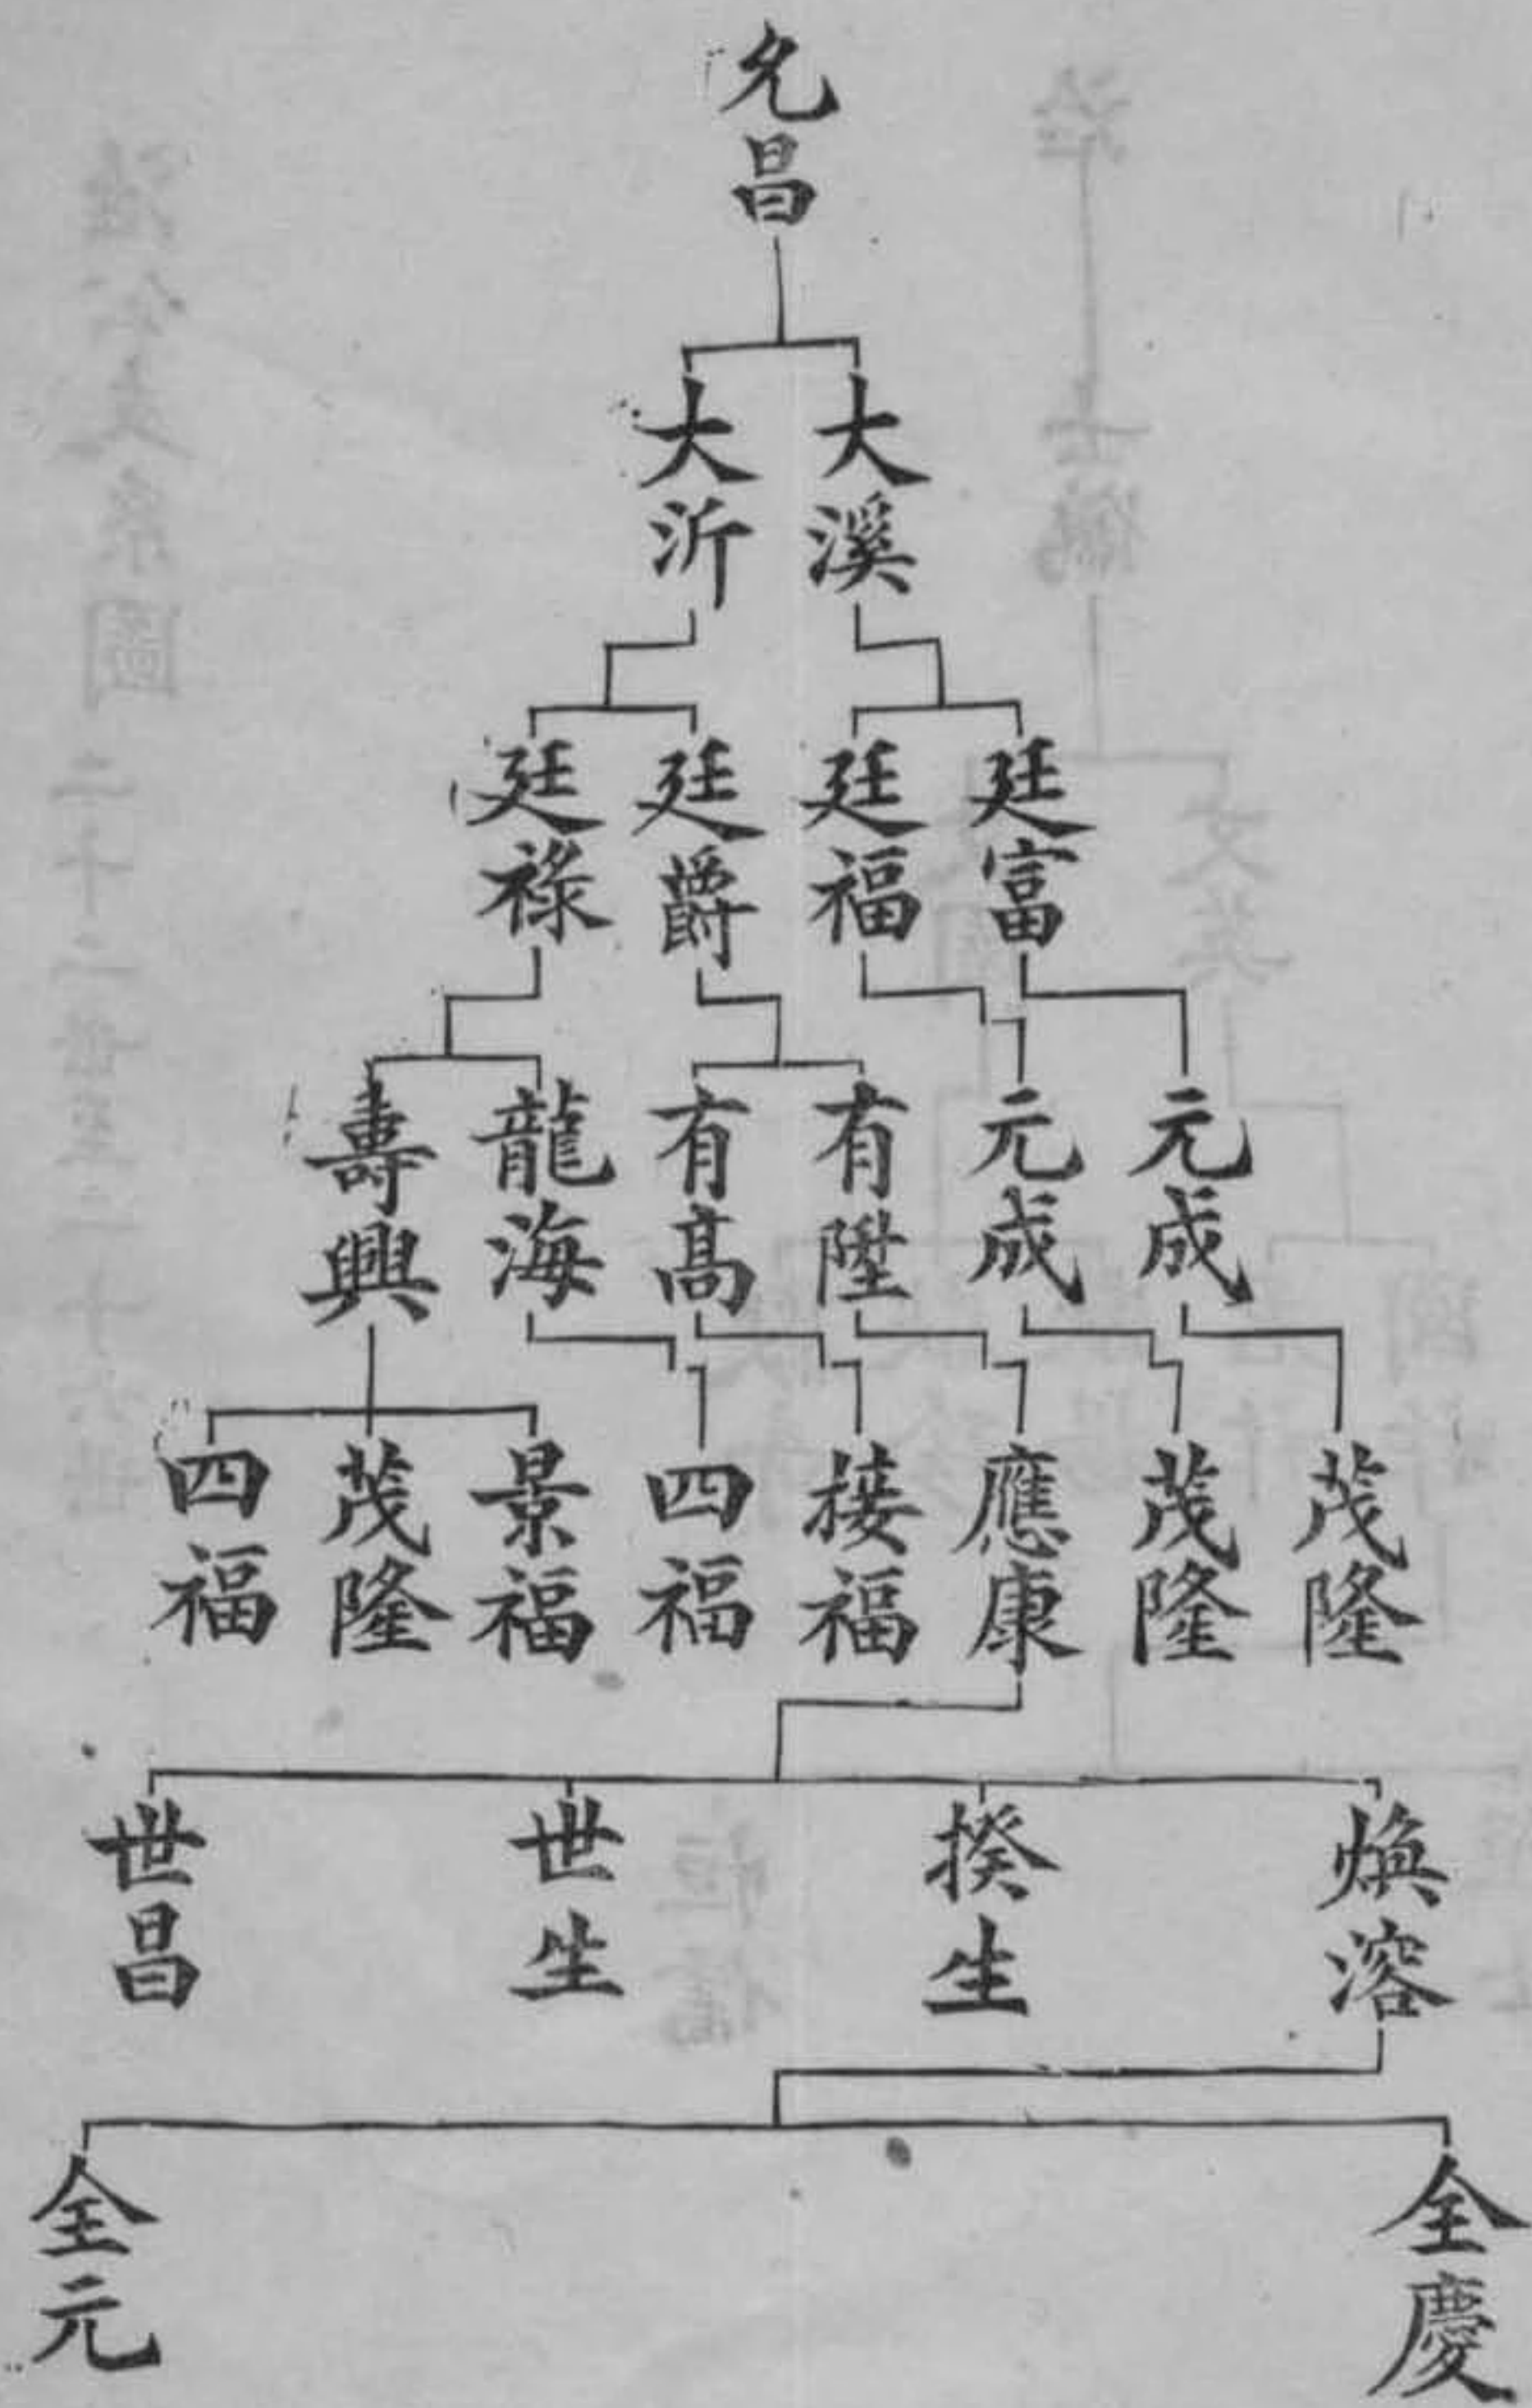 允昌
大溪
大沂
廷富
廷福
廷爵
廷祿
元成
元成
有陞
有高
龍海
壽興
茂隆
茂隆
應康
接福
四福
景福
茂隆
四福
煥溶
揆生
世生
世昌
全慶
全元